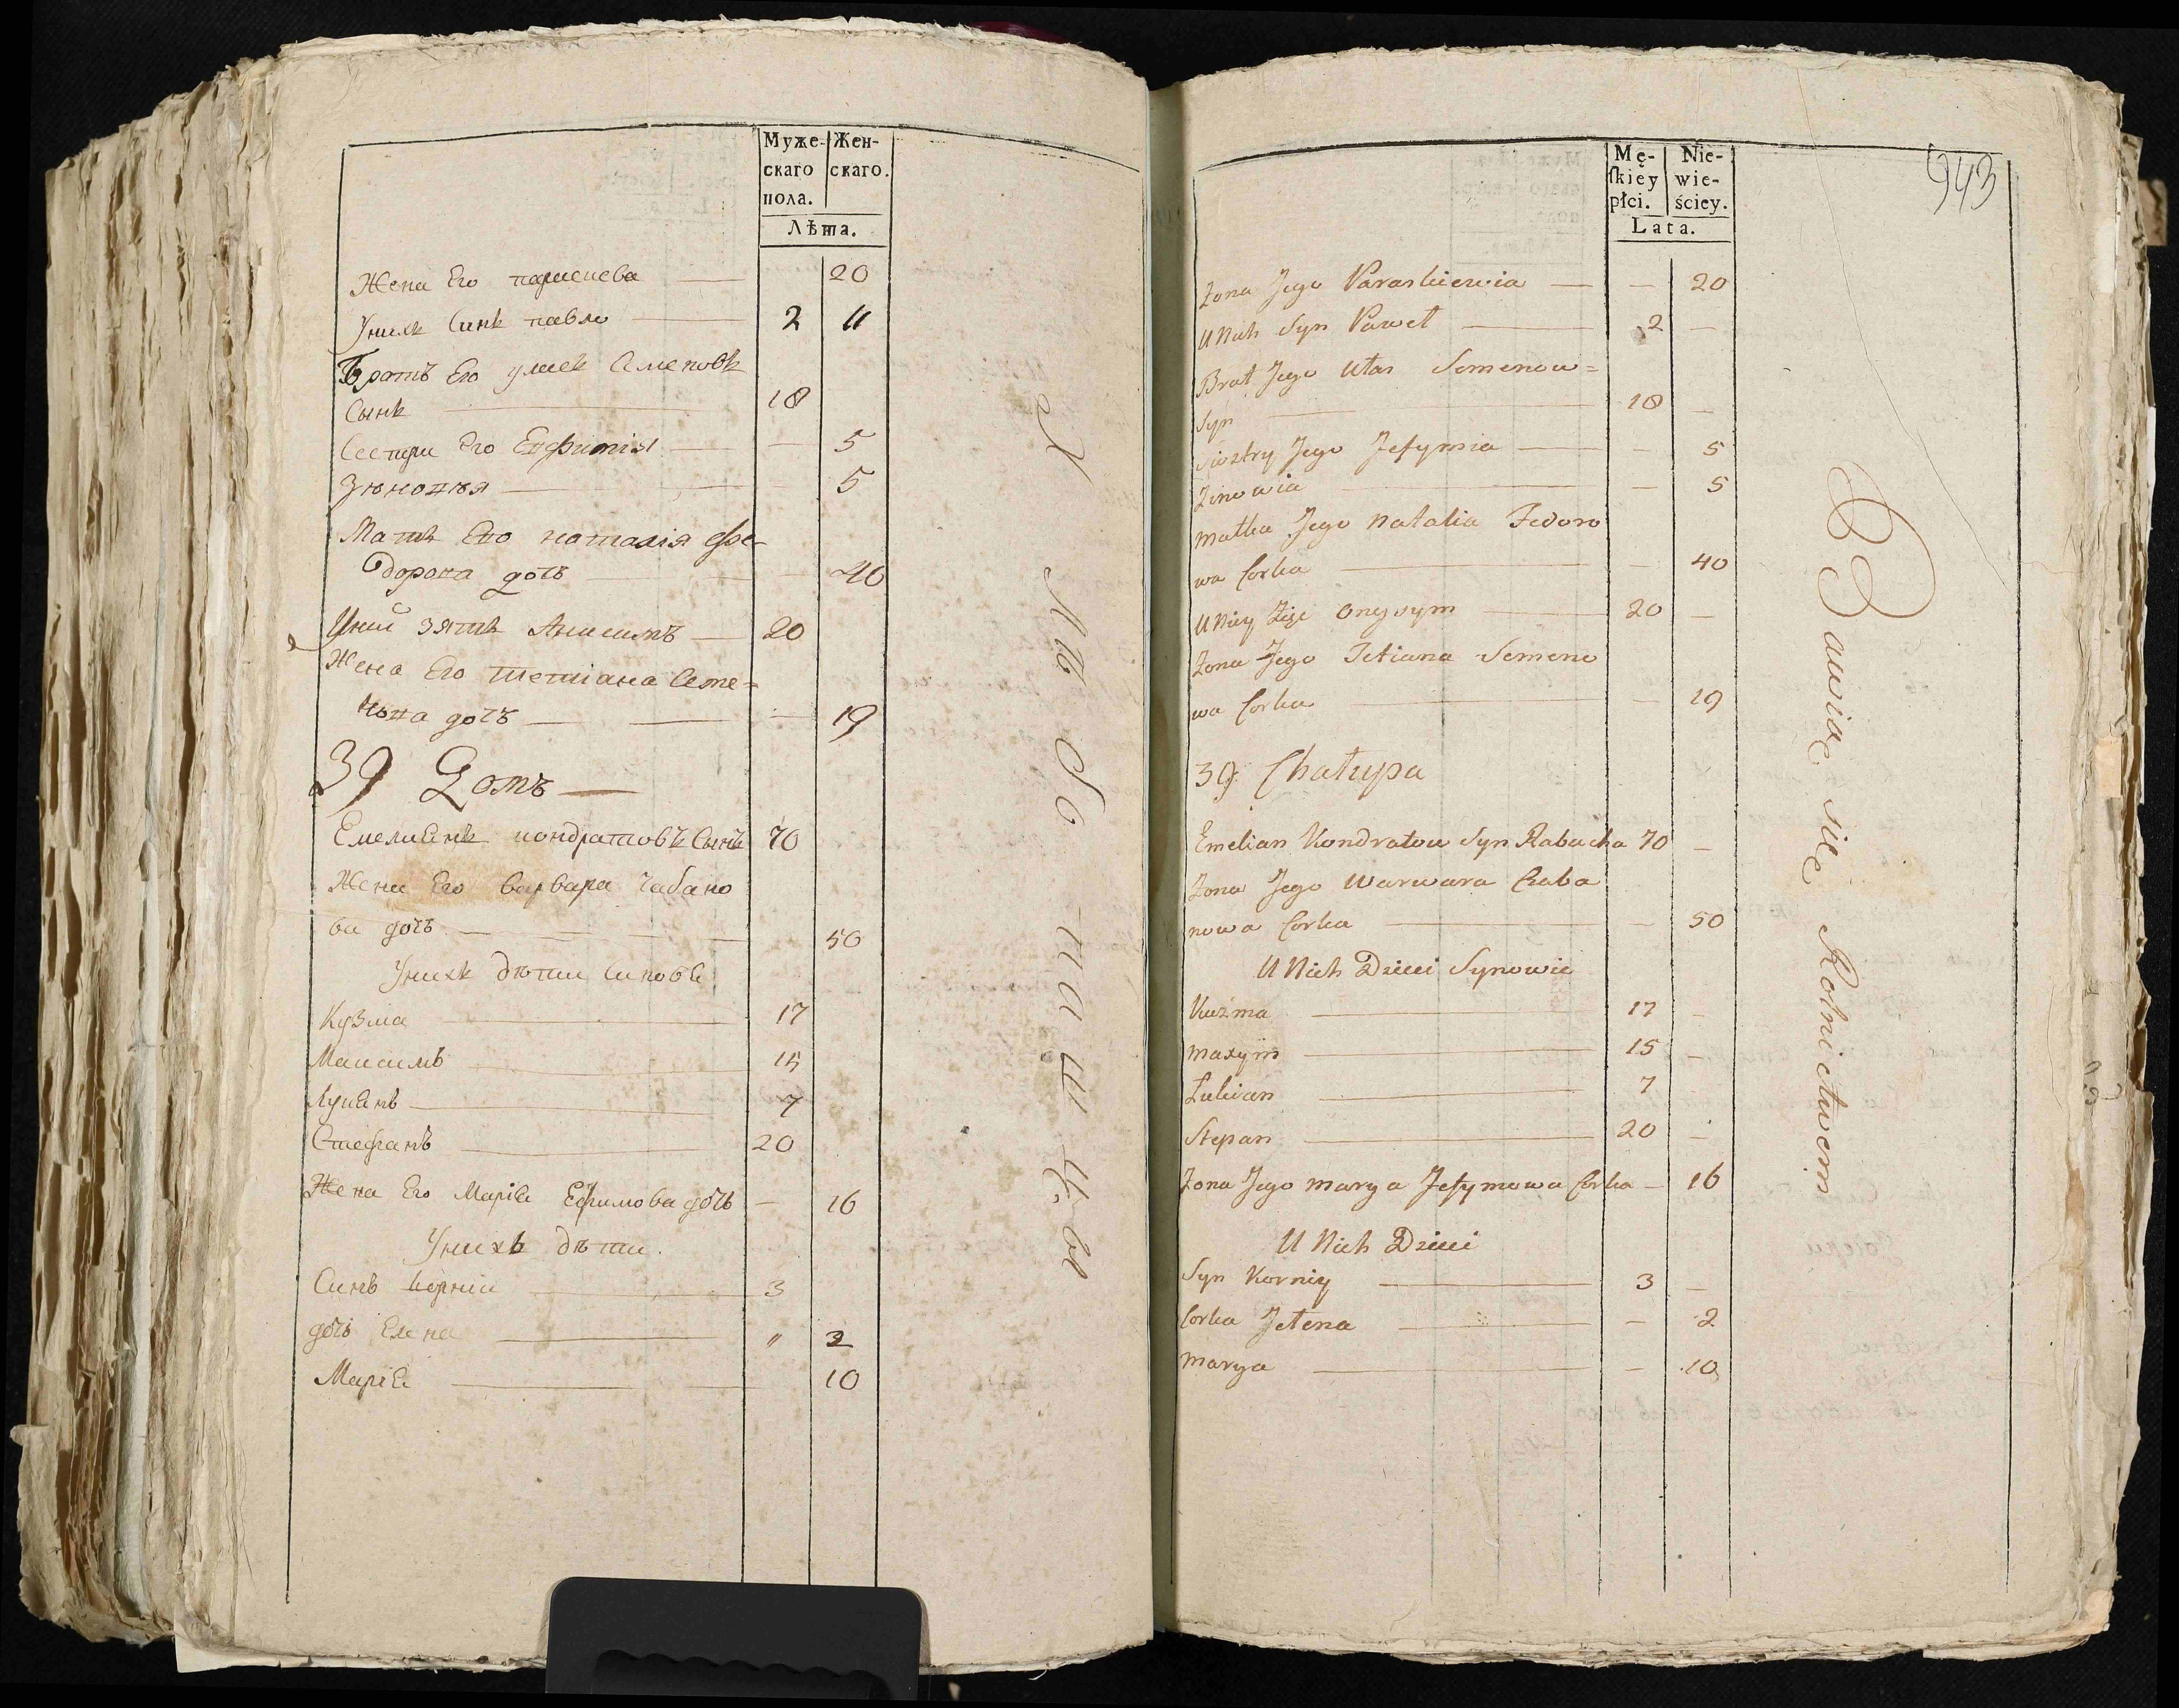 Муже-
скаго
пола.
Жен-
скаго.
Лѣта.
Жена Его парасцева 20
Унихъ Синъ павло 2 11
Братъ Его улясъ Семеновъ
Сынъ 18
Сестри Его Евфимія — 5
Зѣновѣя 5
Мать Его наталія фе-
дорова дочь — 40
Уней зять Анисимъ 20
Жена Его тетіана Семе=
нова дочь — 19
39 Домъ
Емелианъ кондратовъ Сынъ 70
Жена Его варвара Чабано
ва дочь 50
Унихъ дѣти Синове
Кузма 17
Максимъ 15
Лукянъ 7
Стефанъ 20
Жена Его Маріа Ефимова дочь — 16
Унихъ дѣти.
Синъ корній 3
дочь Елена " 2
Маріа 10
Хлѣбопашцы
943
Mę-
skiey
płci.
Nie-
wie-
ściey.
Lata.
Zona Jego Paraskiewia — 20
U Nich Syn Paweł 2 —
Brat Jego Ułas Semenow=
Syn 18 —
Siostry Jego Jefymia — 5
Zinowia — 5
Matka Jego Natalia Fedoro
wa Corka — 40
U Niey Zięć Onysym 20 —
Zona Jego Tetiana Semeno
wa Corka — 19
39 Chałupa
Emelian Kondratow Syn Rabucha 70 —
Zona Jego Warwara Czaba
nowa Corka — 50
U Nich Dzieci Synowie
Kuźma 17 —
Maxym 15 —
Łukian 7 —
Stepan 20 —
Zona Jego Marya Jefymowa Corka — 16
U Nich Dzieci
Syn Korniy 3 —
Corka Jełena — 2
Marya — 10
Bawią się Rolnictwem